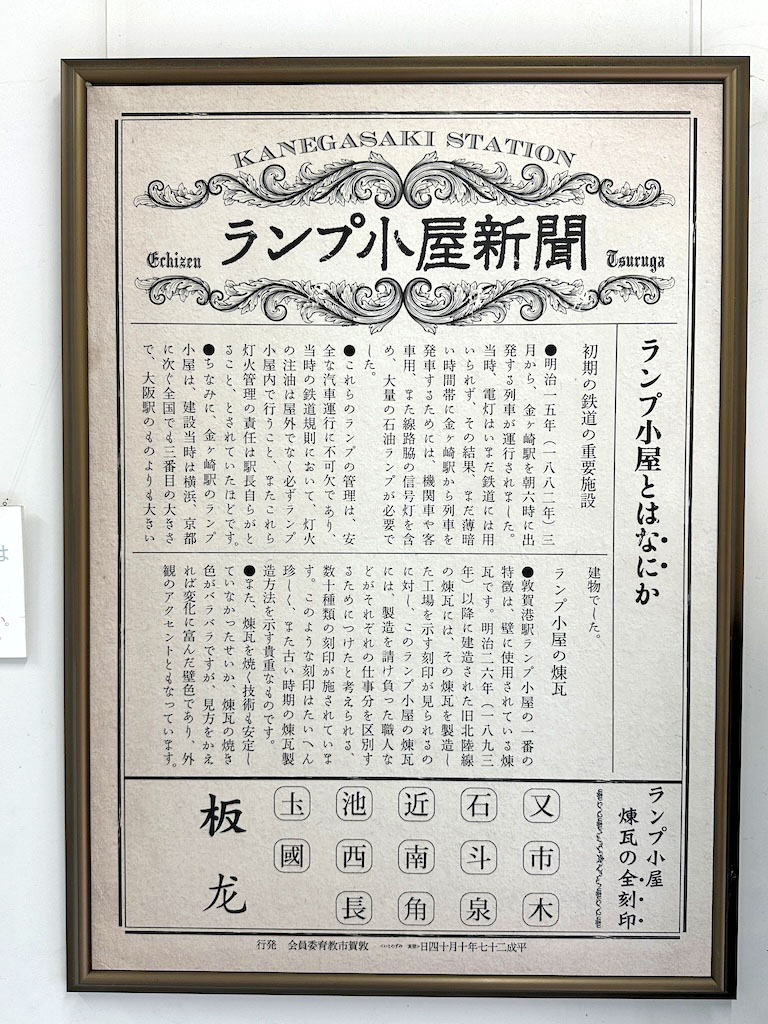 KANEGASAKI STATION
ランプ小屋新聞
Echizen
Tsuruga
ランプ小屋とはなにか
初期の鉄道の重要施設
●明治一五年（一八八二年）三
月から、金ヶ崎駅を朝六時に出
発する列車が運行されました。
当時、電灯はいまだ鉄道には用
いられず、その結果、まだ薄暗
い時間帯に金ヶ崎駅から列車を
発車するためには、機関車や客
車用、また線路脇の信号灯を含
め、大量の石油ランプが必要で
した。
●これらのランプの管理は、安
全な汽車運行に不可欠であり、
当時の鉄道規則において、灯火
の注油は屋外でなく必ずランプ
小屋内で行うこと、またこれら
灯火管理の責任は駅長自らがと
ること、とされていたほどです。
●ちなみに、金ヶ崎駅のランプ
小屋は、建設当時は横浜、京都
に次ぐ全国でも三番目の大きさ
で、大阪駅のものよりも大きい
建物でした。
ランプ小屋の煉瓦
●敦賀港駅ランプ小屋の一番の
特徴は、壁に使用されている煉
瓦です。明治二六年（一八九三
年）以降に建造された旧北陸線
の煉瓦には、その煉瓦を製造し
た工場を示す刻印が見られるの
に対し、このランプ小屋の煉瓦
には、製造を請け負った職人な
どがそれぞれの仕事分を区別す
るためにつけたと考えられる、
数十種類の刻印が施されていま
す。このような刻印はたいへん
珍しく、また古い時期の煉瓦製
造方法を示す貴重なものです。
●また、煉瓦を焼く技術も安定し
ていなかったせいか、煉瓦の焼き
色がバラバラですが、見方をかえ
れば変化に富んだ壁色であり、外
観のアクセントともなっています。
ランプ小屋
煉瓦の全刻印
又 市 木
石 斗 泉
近 南 角
池 西 長
圡 國
板 龙
行発 会員委育教市賀敦
日四十月十年七十二成平
は